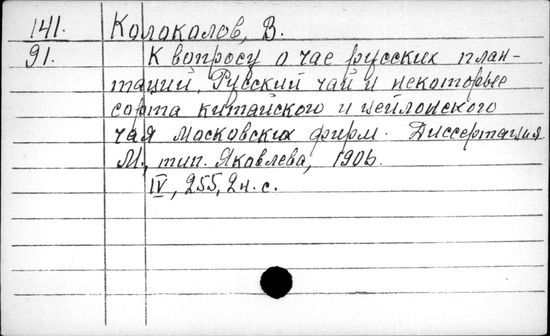 141. Колоколов, В.
91. К вопросу о чае русских план-
таций. Русский чай и некоторые
сорта китайского и цейлонского
чая Московских фирм. Диссертация
М., тип. Яковлева, 1906.
IV, 255, 2н. с.